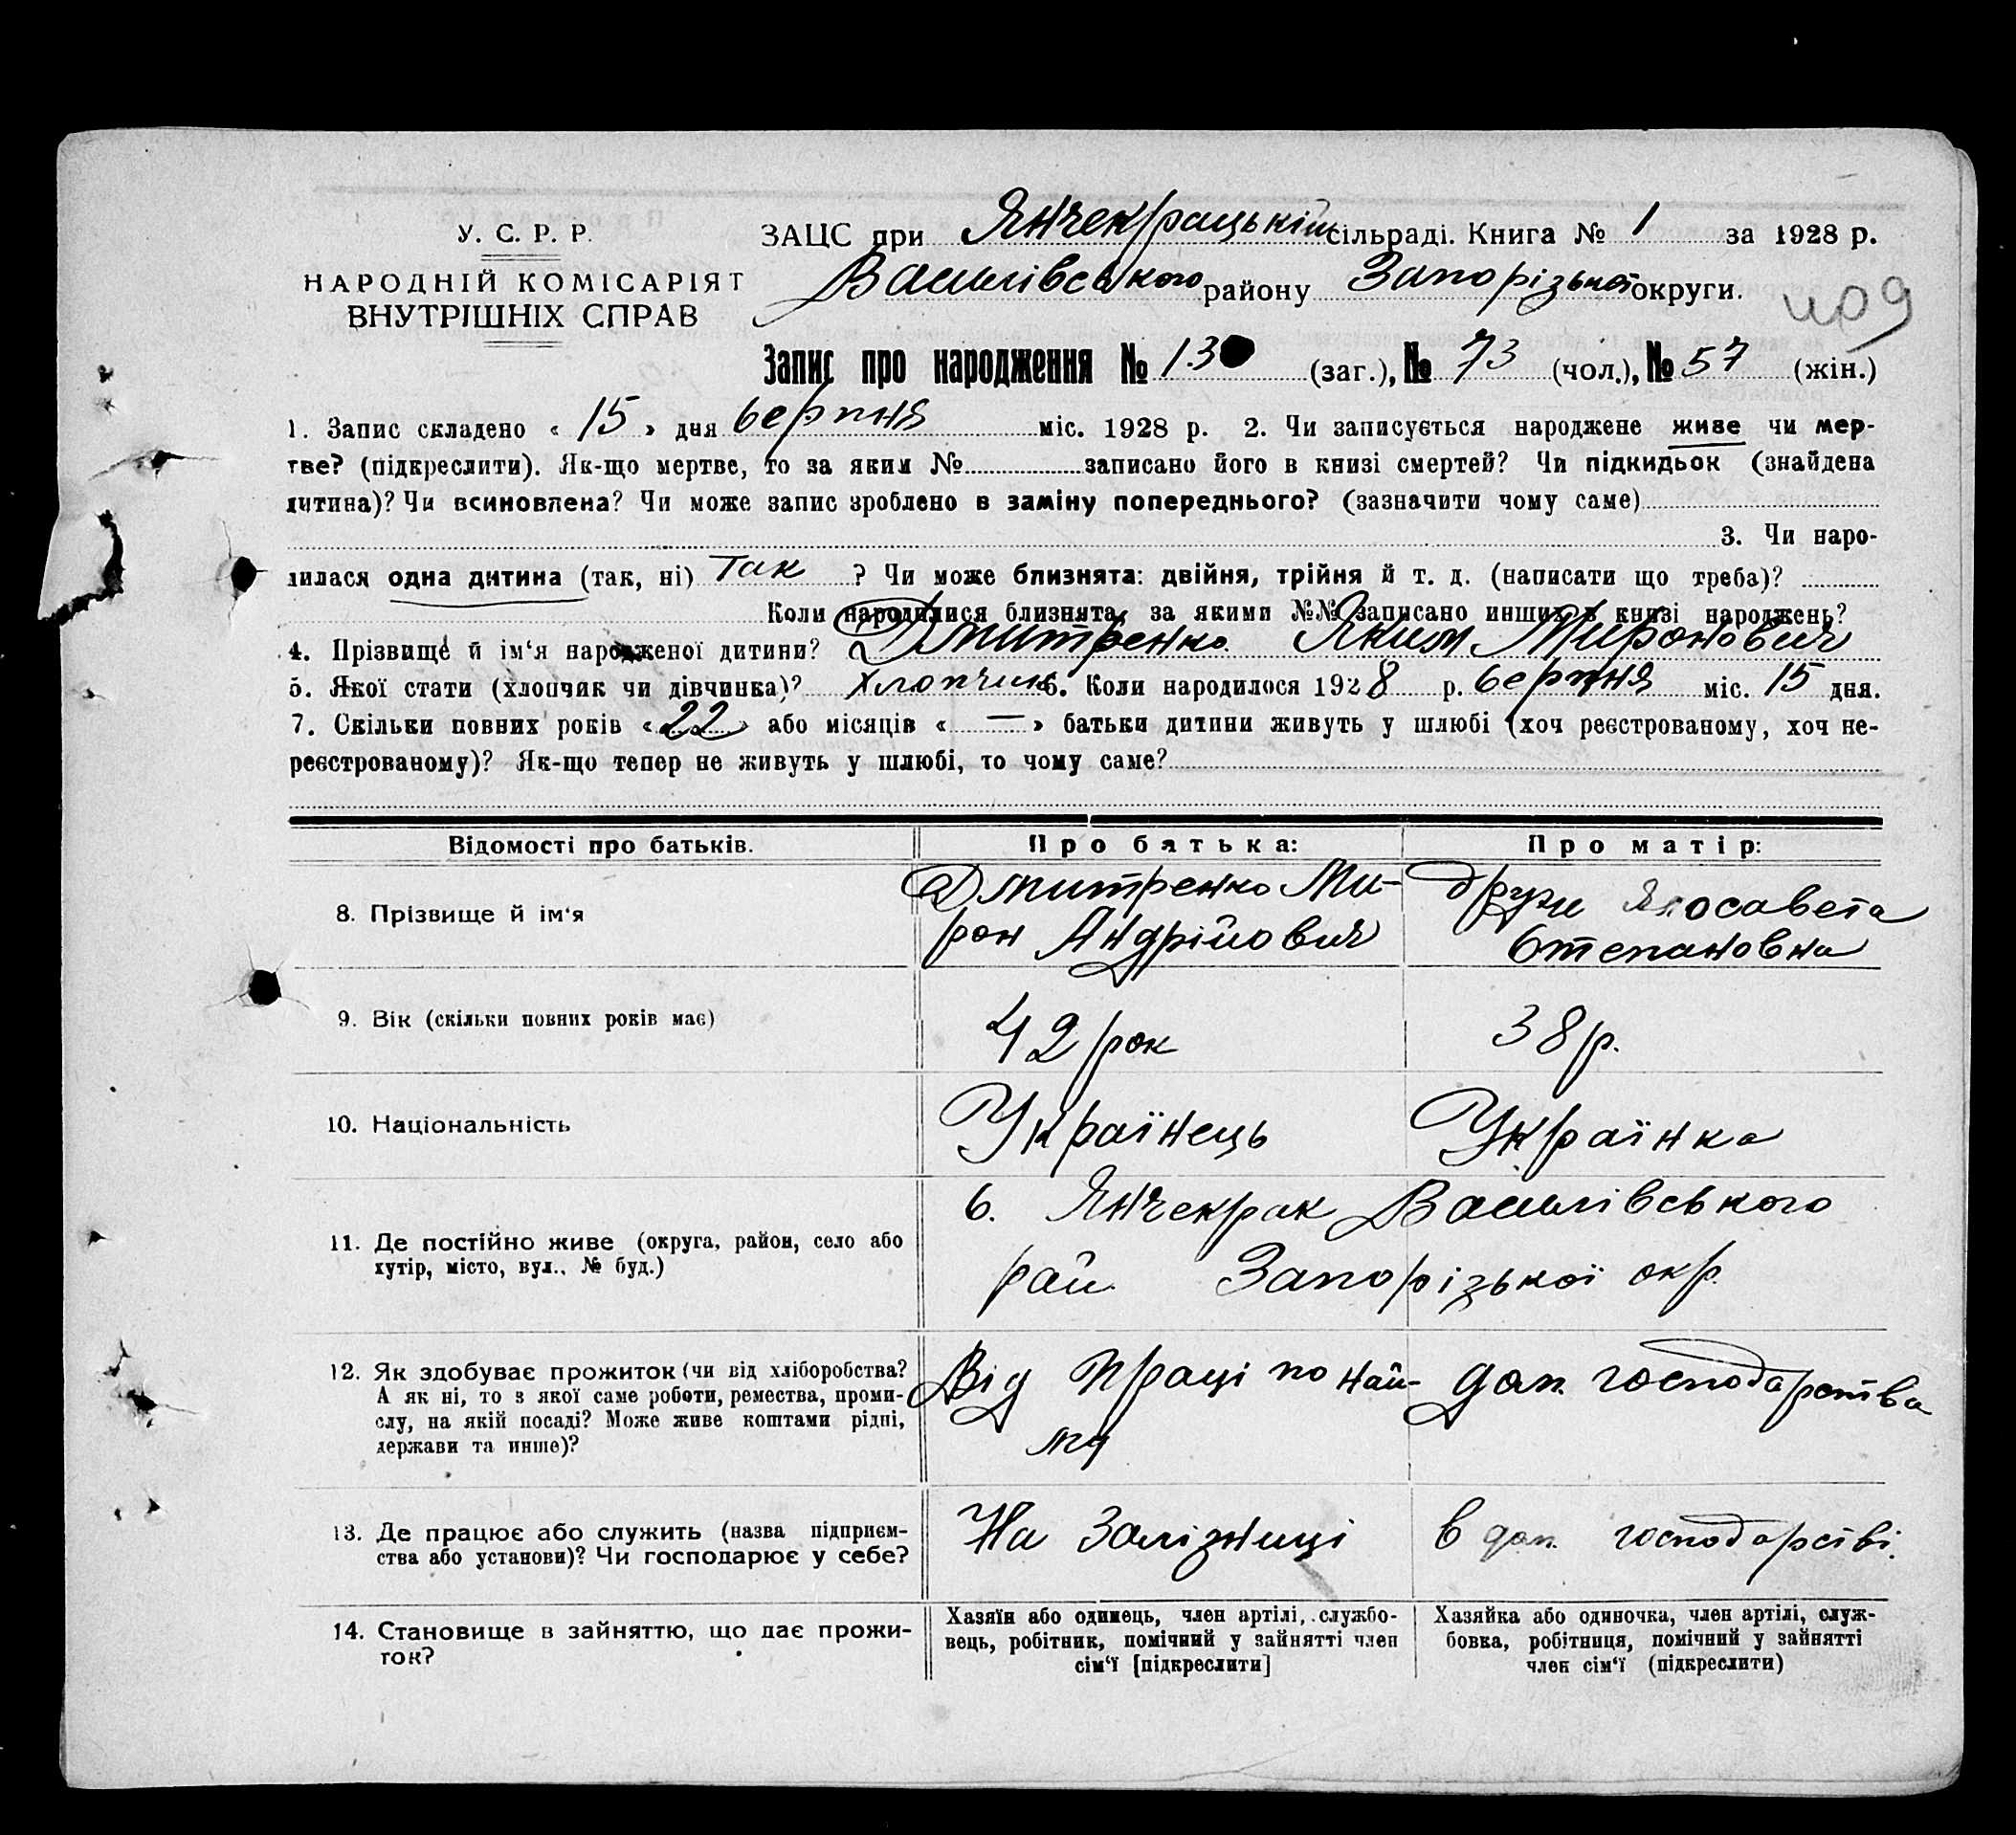 У. С. Р. Р.
НАРОДНІЙ КОМІСАРІЯТ
ВНУТРІШНІХ СПРАВ
ЗАЦС при Янчекрацькій сільраді. Книга № 1 за 1928 р.
Василівського району Запорізької округи.
409
Запис про народження № 130 (заг.), № 73 (чол.), № 57 (жін.)
1. Запис складено « 15 » дня серпня міс. 1928 р. 2. Чи записується народжене живе чи мер-
тве? (підкреслити). Як-що мертве, то за яким № записано його в книзі смертей? Чи підкидьок (знайдена
дитина)? Чи всиновлена? Чи може запис зроблено в заміну попереднього? (зазначити чому саме)
3. Чи наро-
дилася одна дитина (так, ні) Так ? Чи може близнята: двійня, трійня й т. д. (написати що треба)?
Коли народилися близнята, за якими №№ записано инших в книзі народжень?
4. Прізвище й ім‘я народженої дитини? Дмитренко Яким Миронович
5. Якої стати (хлопчик чи дівчинка)? Хлопчик 6. Коли народилося 1928 р. серпня міс. 15 дня.
7. Скільки повних років « 22 » або місяців « — » батьки дитини живуть у шлюбі (хоч реєстрованому, хоч не-
реєстрованому)? Як-що тепер не живуть у шлюбі, то чому саме?
Відомості про батьків. Про батька: Про матір:
8. Прізвище й ім‘я
Дмитренко Ми-
рон Андрійович
друж Ялосавета
Степановна
9. Вік (скільки повних років має) 42 рок 38 р.
10. Національність Українець Українка
11. Де постійно живе (округа, район, село або
хутір, місто, вул., № буд.)
с. Янчекрак Василівського
рай. Запорізької окр.
12. Як здобуває прожиток (чи від хліборобства?
А як ні, то з якої саме роботи, ремества, проми-
слу, на якій посаді? Може живе коштами рідні,
держави та инше)?
Від праці по най-
му
дом. господарства
13. Де працює або служить (назва підприєм-
ства або установи)? Чи господарює у себе?
На Залізниці
в дом. господарстві.
14. Становище в зайняттю, що дає прожи-
ток?
Хазяїн або одинець, член артілі, службо-
вець, робітник, помічний у зайнятті член
сім‘ї [підкреслити]
Хазяйка або одиночка, член артілі, служ-
бовка, робітниця, помічний у зайнятті
член сім‘ї (підкреслити)